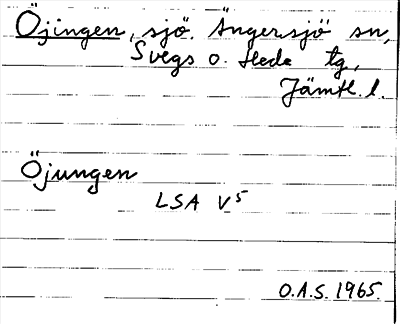 Öjingen, sjö. Ängersjö sn,
Svegs o. Heda tg,
Jämtl. l.
Öjungen
LSA V5
O.A.S. 1965.